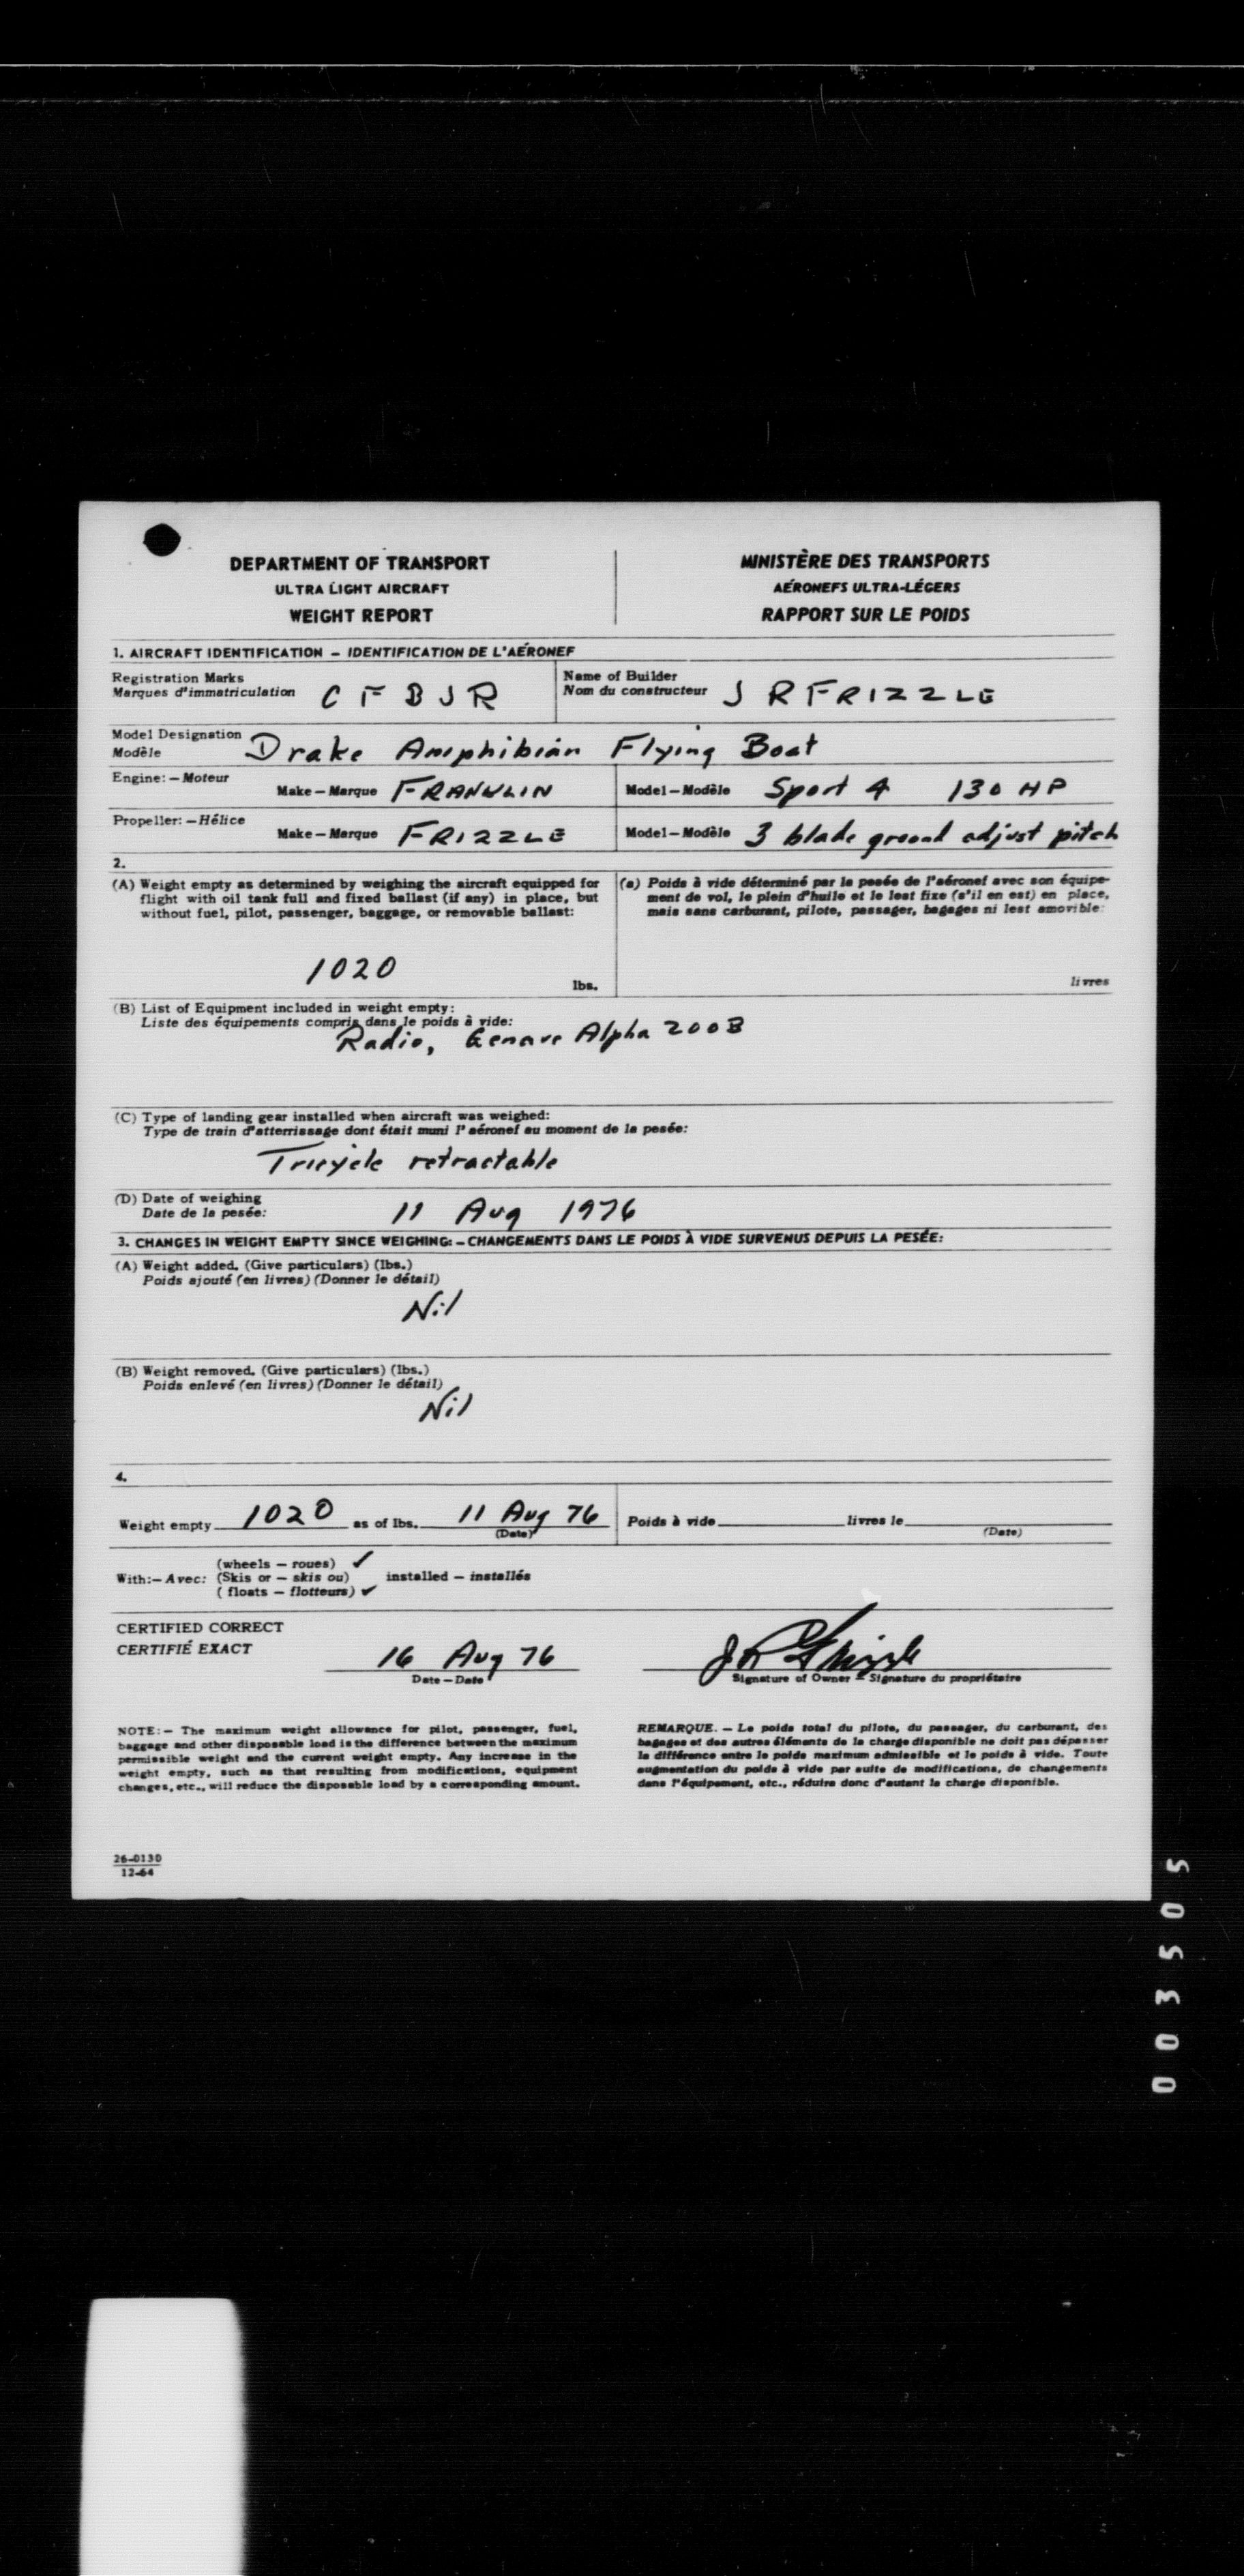 DEPARTMENT OF TRANSPORT
ULTRA LIGHT AIRCRAFT
WEIGHT REPORT
MINISTÈRE DES TRANSPORTS
AÉRONEFS ULTRA-LÉGERS
RAPPORT SUR LE POIDS
1. AIRCRAFT IDENTIFICATION – IDENTIFICATION DE L'AÉRONEF
Registration Marks
Marques d'immatriculation C F B J R
Name of Builder
Nom du constructeur J R FRIZZLE
Model Designation
Modèle Drake Amphibian Flying Boat
Engine: – Moteur
Make – Marque FRANKLIN
Model – Modèle Sport 4 130 HP
Propeller: – Hélice
Make – Marque FRIZZLE
Model – Modèle 3 blade ground adjust pitch
2.
(A) Weight empty as determined by weighing the aircraft equipped for
flight with oil tank full and fixed ballast (if any) in place, but
without fuel, pilot, passenger, baggage, or removable ballast:
1020 lbs.
(a) Poids à vide déterminé par la pesée de l'aéronef avec son équipe-
ment de vol, le plein d'huile et le lest fixe (s'il en est) en place,
mais sans carburant, pilote, passager, bagages ni lest amovible:
livres
(B) List of Equipment included in weight empty:
Liste des équipements compris dans le poids à vide:
Radio, Genave Alpha 200B
(C) Type of landing gear installed when aircraft was weighed:
Type de train d'atterrissage dont était muni l'aéronef au moment de la pesée:
Tricycle retractable
(D) Date of weighing
Date de la pesée: 11 Aug 1976
3. CHANGES IN WEIGHT EMPTY SINCE WEIGHING: – CHANGEMENTS DANS LE POIDS À VIDE SURVENUS DEPUIS LA PESÉE:
(A) Weight added. (Give particulars) (lbs.)
Poids ajouté (en livres) (Donner le détail)
Nil
(B) Weight removed. (Give particulars) (lbs.)
Poids enlevé (en livres) (Donner le détail)
Nil
4.
Weight empty 1020 as of lbs. 11 Aug 76
(Date)
Poids à vide livres le
(Date)
(wheels – roues) ✓
With:– Avec: (Skis or – skis ou) installed – installés
( floats – flotteurs) ✓
CERTIFIED CORRECT
CERTIFIÉ EXACT
16 Aug 76
Date – Date
J R Frizzle
Signature of Owner – Signature du propriétaire
NOTE: – The maximum weight allowance for pilot, passenger, fuel,
baggage and other disposable load is the difference between the maximum
permissible weight and the current weight empty. Any increase in the
weight empty, such as that resulting from modifications, equipment
changes, etc., will reduce the disposable load by a corresponding amount.
REMARQUE. – Le poids total du pilote, du passager, du carburant, des
bagages et des autres éléments de la charge disponible ne doit pas dépasser
la différence entre le poids maximum admissible et le poids à vide. Toute
augmentation du poids à vide par suite de modifications, de changements
dans l'équipement, etc., réduira donc d'autant la charge disponible.
26-0130
12-64
003505